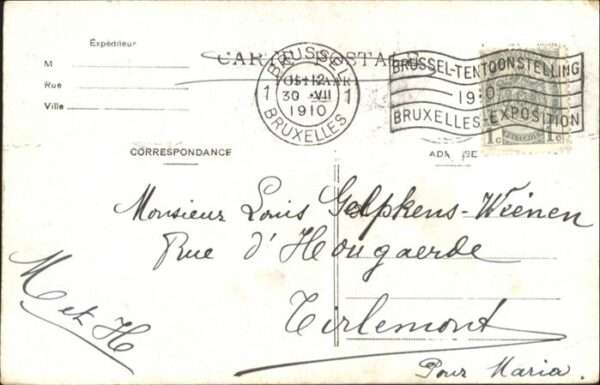 Expéditeur
M
Rue
Ville
CARTE POSTALE
BRUSSEL
1 12 1
30 VII
1910
BRUXELLES
BRUSSEL-TENTOONSTELLING
1910
BRUXELLES-EXPOSITION
1c 1c
CORRESPONDANCE
ADRESSE
Monsieur Louis Gelpkens-Weenen
Rue d'Hougaerde
Tirlemont
M et H
Pour Maria.